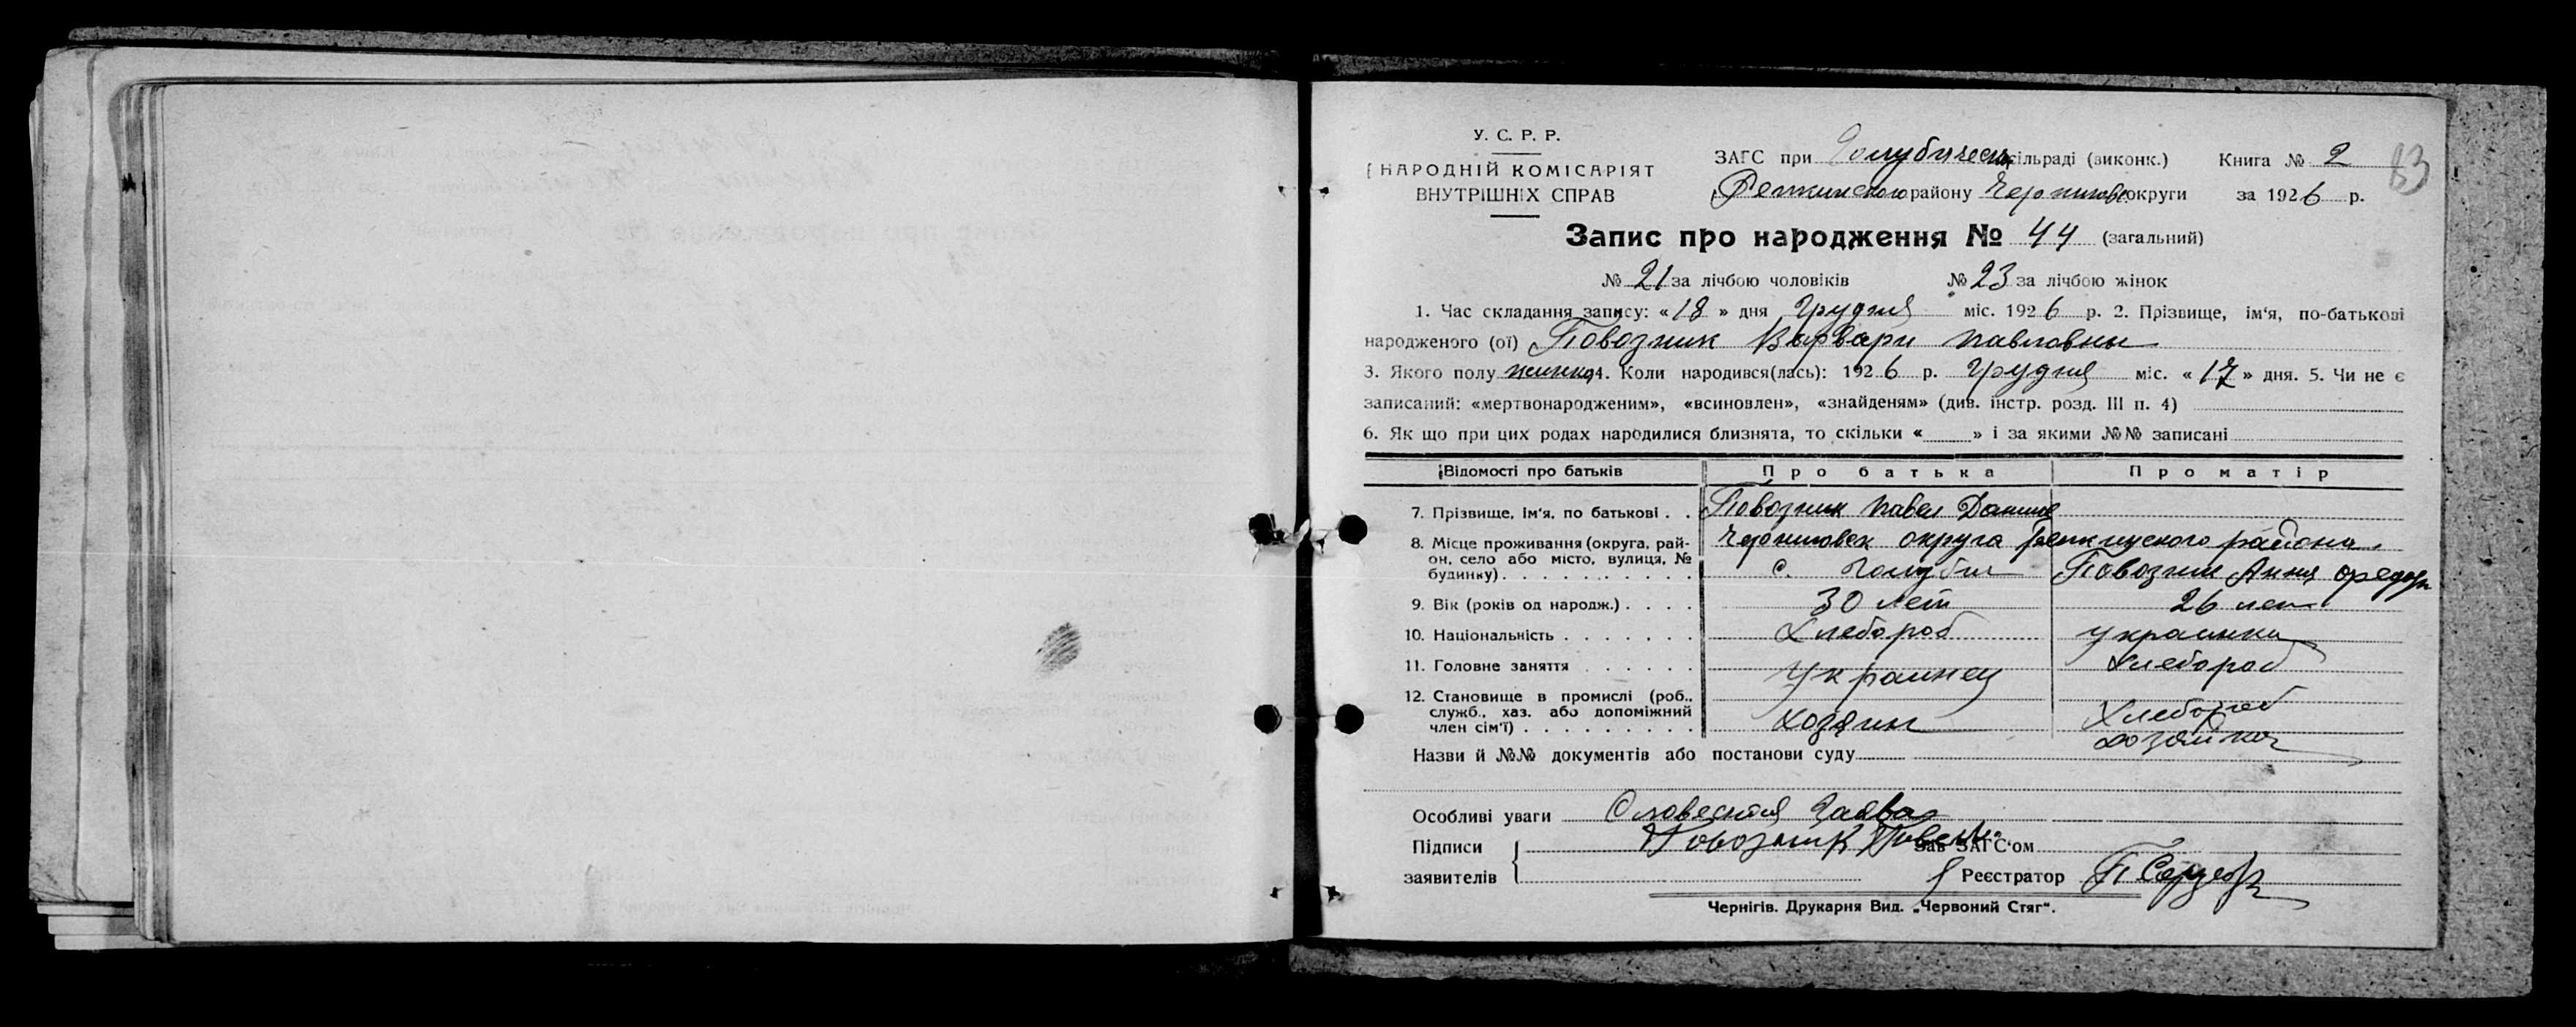 У. С. Р. Р.
НАРОДНІЙ КОМІСАРІЯТ
ВНУТРІШНІХ СПРАВ
ЗАГС при Голубическ сільраді (виконк.) Книга № 2
83
Репкинского району Чернигове округи за 1926 р.
Запис про народження № 44 (загальний)
№ 21 за лічбою чоловіків № 23 за лічбою жінок
1. Час складання запису: «18» дня Грудня міс. 1926 р. 2. Прізвище, ім'я, по-батькові
народженого (ої) Повозник Варвари Павловны
3. Якого полу 4. Коли народився(лась): 1926 р. Грудня міс. «17» дня. 5. Чи не є
записаний: «мертвонародженим», «всиновлен», «знайденям» (див. інстр. розд. III п. 4)
6. Як що при цих родах народилися близнята, то скільки « » і за якими №№ записані
Відомості про батьків Про батька Про матір
7. Прізвище, ім'я, по батькові . . Повозник Павел
8. Місце проживання (округа, рай- Черниговск округа Репкинского района
он, село або місто, вулиця, №
будинку) . . . . . . . . . . с. Повозник Анна
9. Вік (років од народж.) . . . . 30 лет 26 лет
10. Національність . . . . . . . Хлебороб украинка
11. Головне заняття . . . . . . Украинец Хлебороб
12. Становище в промислі (роб.,
служб., хаз. або допоміжний Хлебороб
член сім'ї) . . . . . . . . . Хозяин хозяйка
Назви й №№ документів або постанови суду
Особливі уваги Словестня Заява
Підписи Повозник Павел Зав ЗАГС'ом
заявителів Реєстратор
Чернігів. Друкарня Вид. „Червоний Стяг".